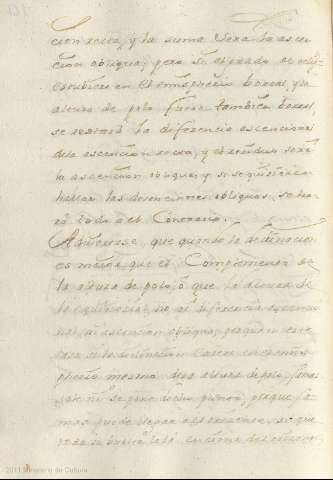 cion recta, y la suma sera la ascen
cion obliqua; pero si el grado de
estubiere en el emisferio boreal, y la
altura de polo fuere tambien boreal,
se restará la diferencia ascencional
de la ascencion recta, y el residuo será
la ascencion obliqua; y si se quisieren
hallar las decenciones obliquas, se ha
rá todo a el Contrario.
Adviertase, que quando la declinacion
es maior que el Complemento de
la altura de polo, ó que la altura de
la equinocial, no ai diferencia ascencio
nal, ni ascencion obliqua, porque en este
caso si la declinacion cae en el emis
pherio mesmo de la altura de polo,
ni se pone dicho punto, porque ja
mas puede llegar a el orisonte, si que
toda su buelta la dá encima del orisonte
2011 Ministerio de Cultura